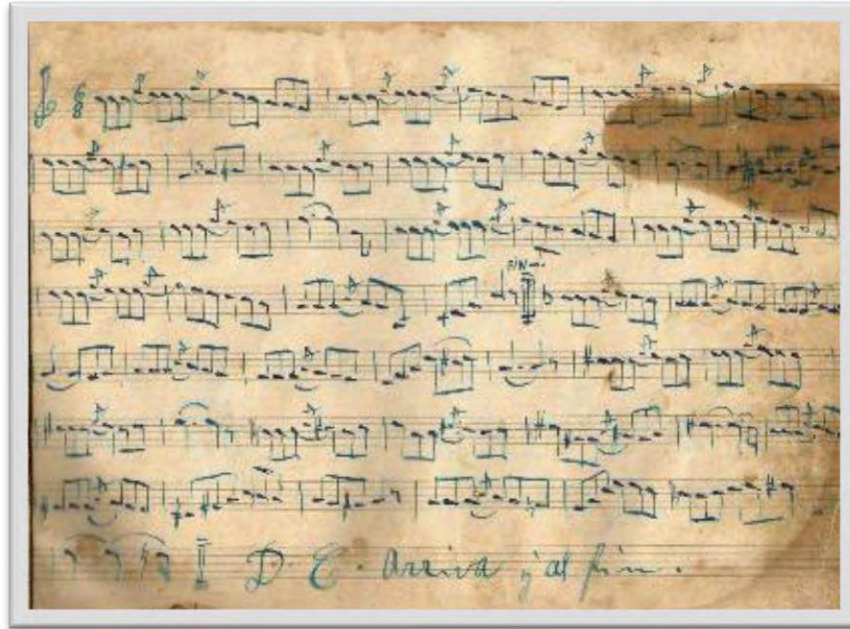 FIN
D. C. Arriva y al fin.